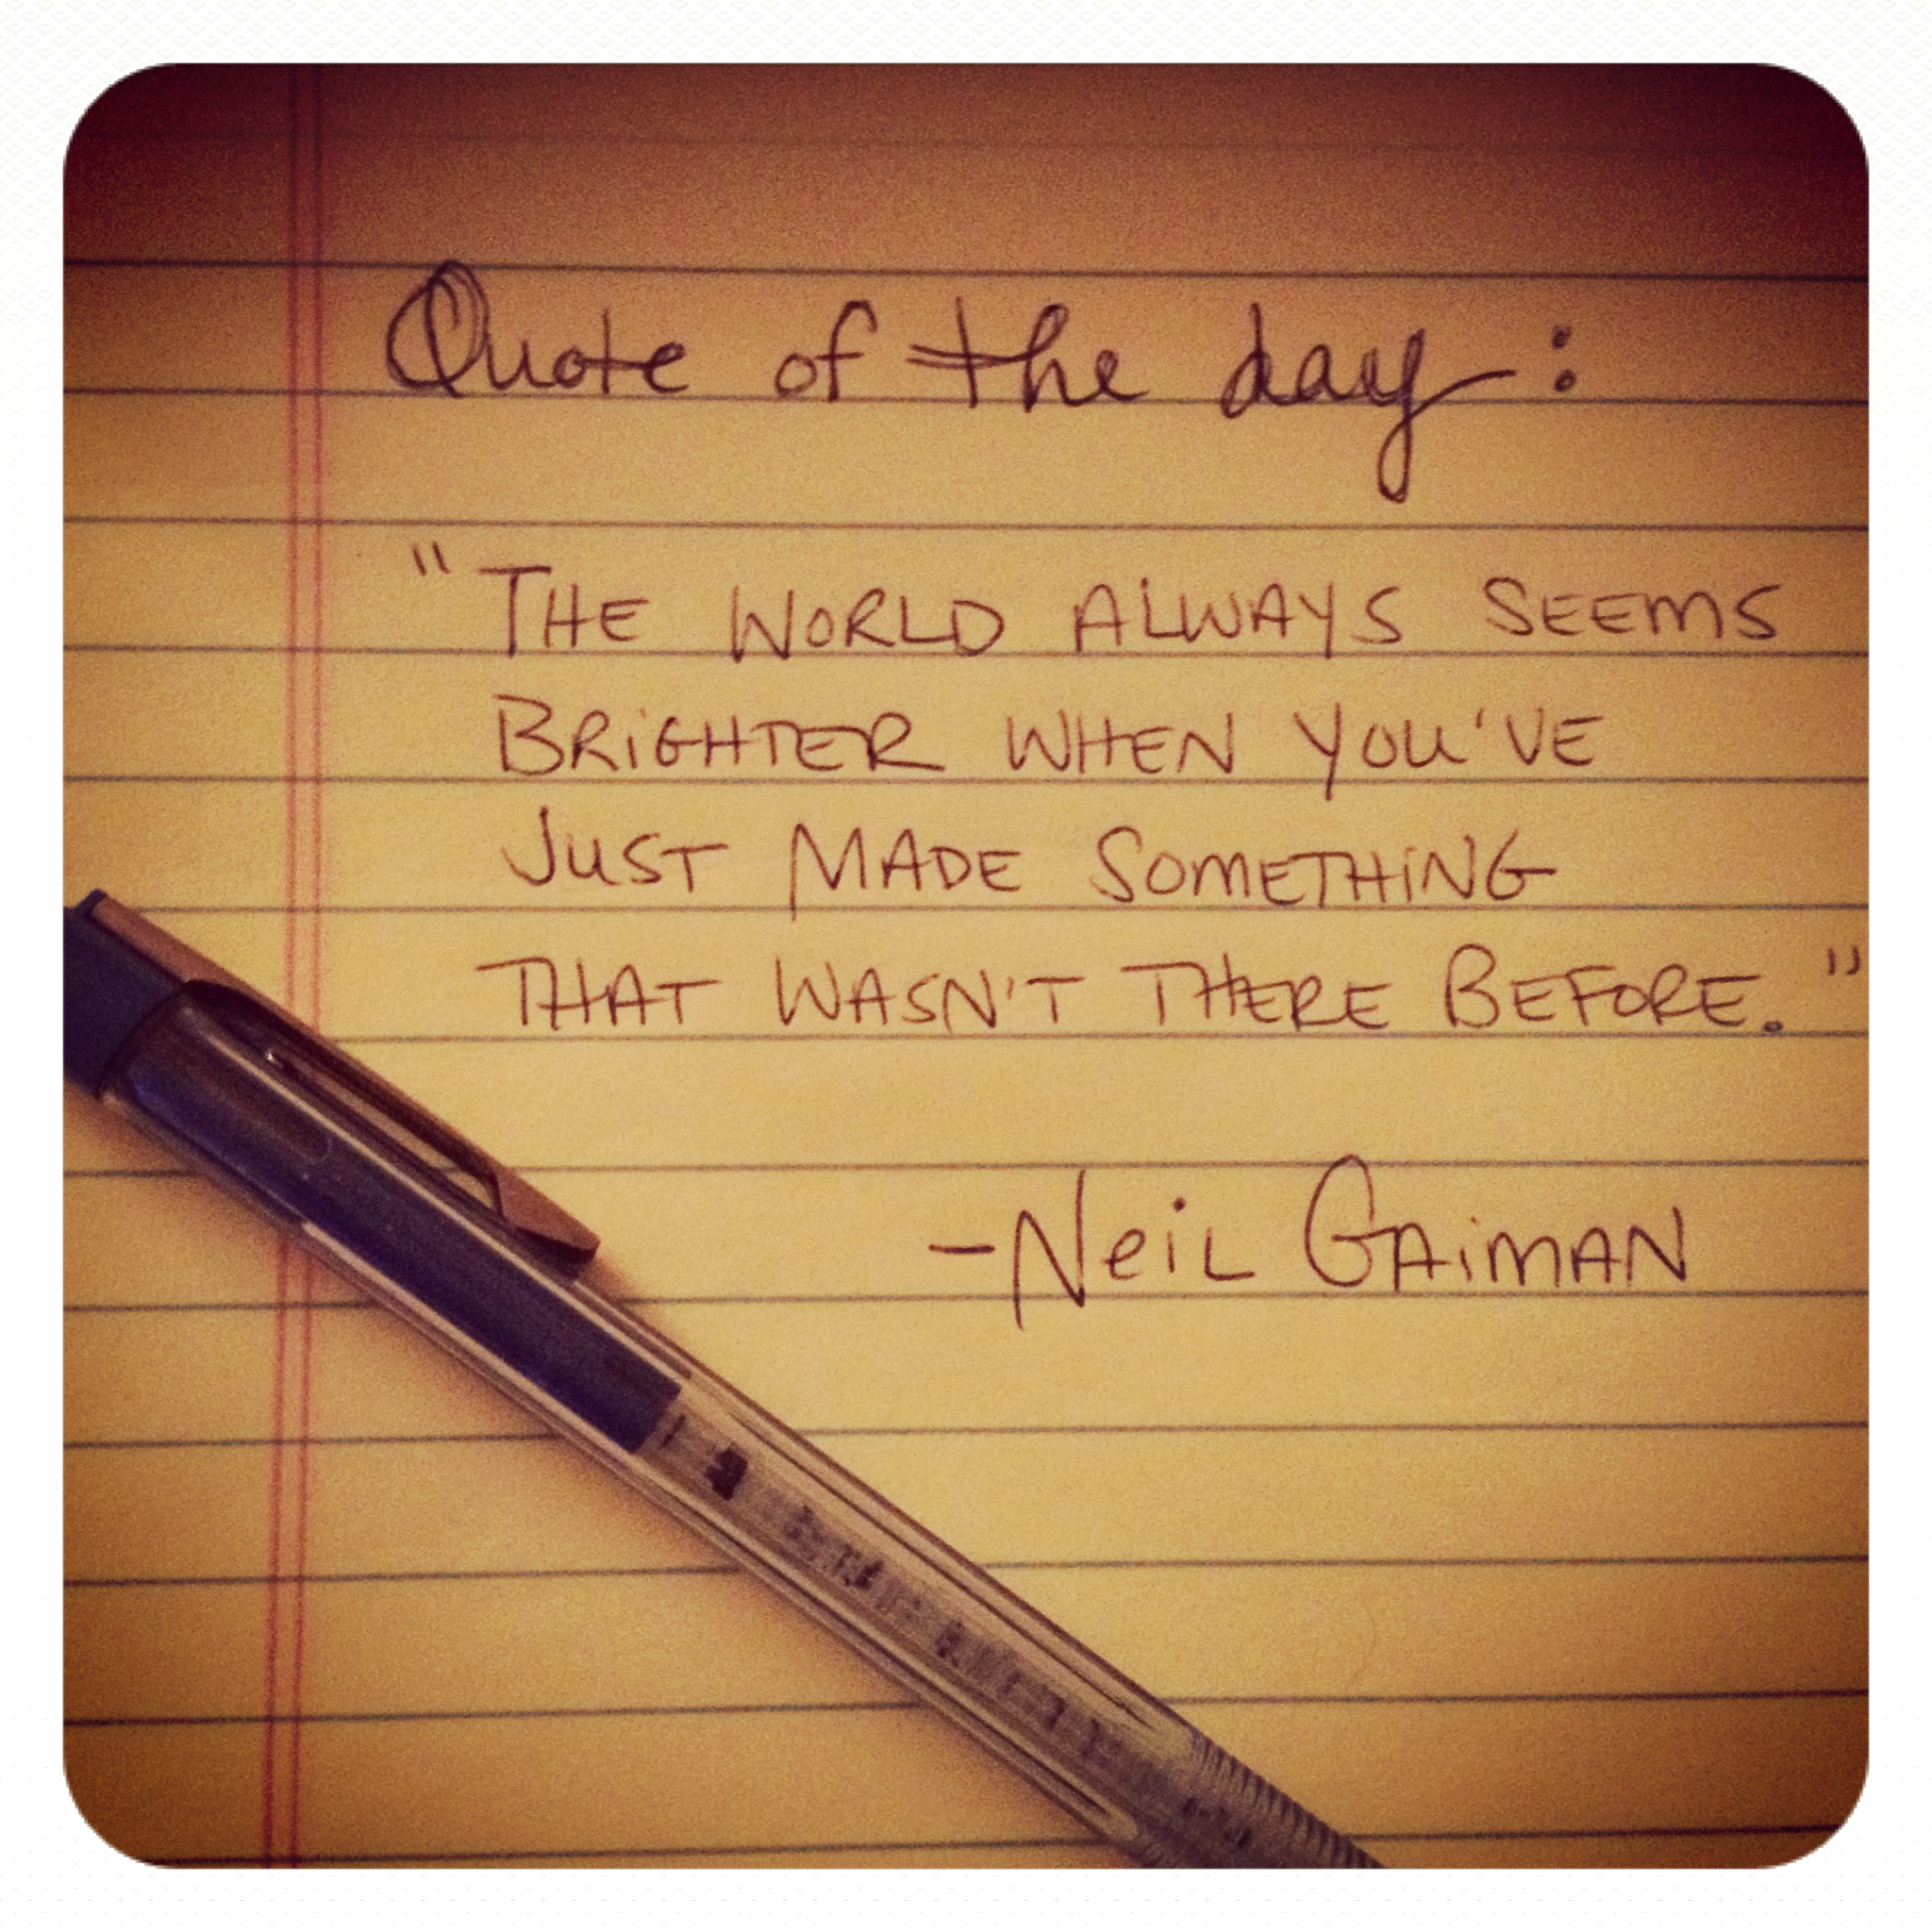 Quote of the day:
"THE WORLD ALWAYS SEEMS
BRiGHTER WHEN YOU'VE
JUST MADE SOMETHiNG
THAT WASN'T THERE BEFORE."
-NeiL GAiMAN